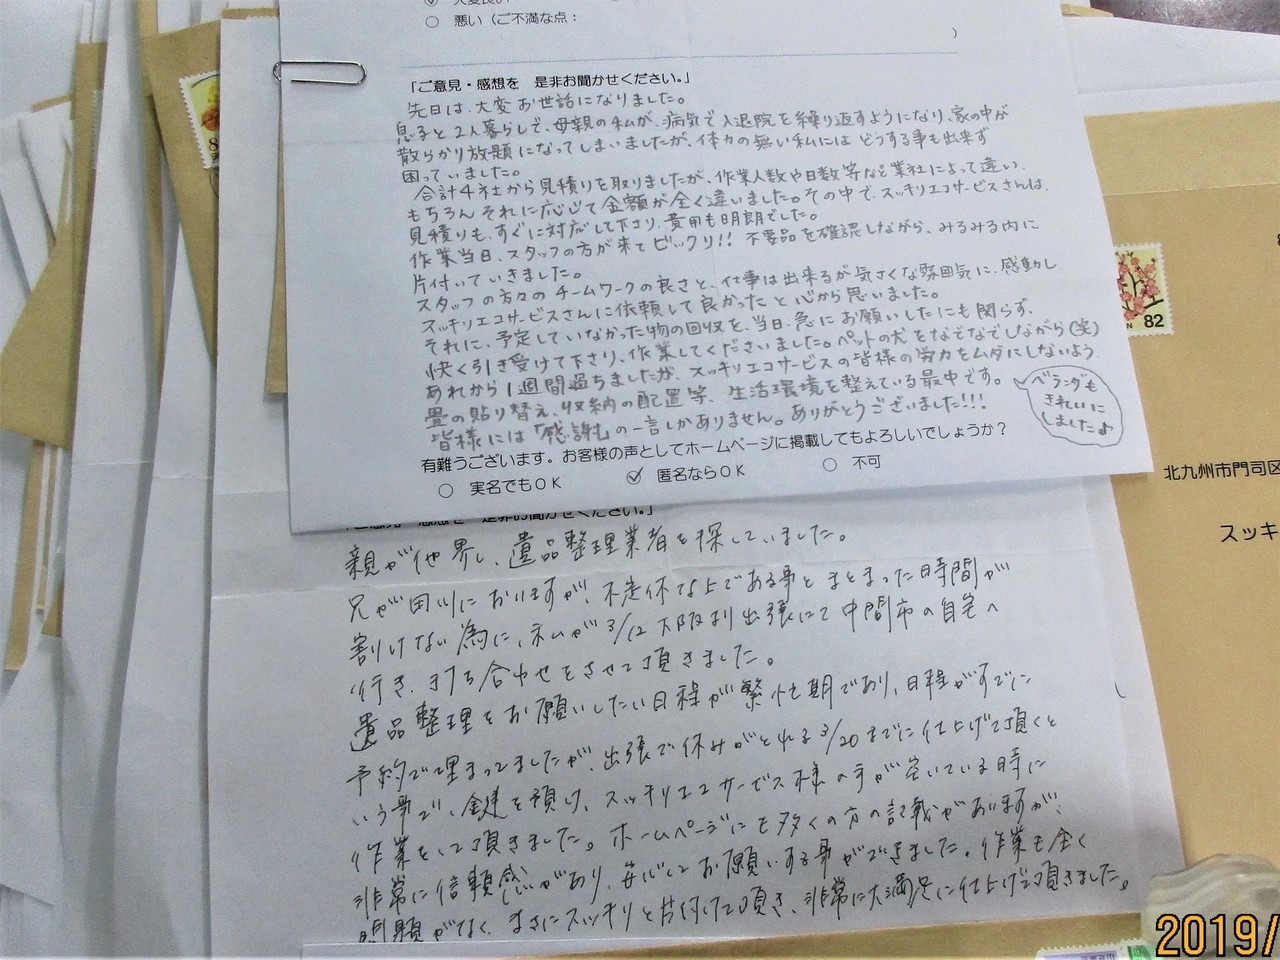 ○ 悪い（ご不満な点：
）
「ご意見・感想を 是非お聞かせください。」
先日は、大変お世話になりました。
息子と2人暮らしで、母親の私が、病気で入退院を繰り返すようになり、家の中が
散らかり放題になってしまいましたが、体力の無い私にはどうする事も出来ず
困っていました。
合計4社から見積りを取りましたが、作業人数や日数等など業社によって違い、
もちろんそれに応じて金額が全く違いました。その中で、スッキリエコサービスさんは、
見積りも、すぐに対応して下さり、費用も明朗でした。
作業当日、スタッフの方が来てビックリ!! 不要品を確認しながら、みるみる内に
片付いていきました。
スタッフの方々のチームワークの良さと、仕事は出来るが気さくな雰囲気に、感動し
スッキリエコサービスさんに依頼して良かったと心から思いました。
それに、予定していなかった物の回収を、当日、急にお願いしたにも関らず、
快く引き受けて下さり、作業してくださいました。ペットの犬をなでなでしながら(笑)
あれから1週間過ちましたが、スッキリエコサービスの皆様の労力をムダにしないよう
畳の貼り替え、収納の配置等、生活環境を整えている最中です。
皆様には「感謝」の一言しかありません。ありがとうございました!!!
ベランダも
きれいに
しました♪
有難うございます。お客様の声としてホームページに掲載してもよろしいでしょうか？
○ 実名でもOK ✓ 匿名ならOK ○ 不可
「ご意見・感想を 是非お聞かせください。」
親が他界し、遺品整理業者を探していました。
兄が田川におりますが、不定休な上である事とまとまった時間が
割けない為に、私が3/12大阪より出張にて中間市の自宅へ
行き、打ち合わせをさせて頂きました。
遺品整理をお願いしたい日程が繁忙期であり、日程がすでに
予約で埋まってましたが、出張で休みがとれる3/20までに仕上げて頂くと
いう事で、鍵を預け、スッキリエコサービス様の手が空いている時に
作業をして頂きました。ホームページにも多くの方の記載がありますが、
非常に信頼感があり、安心してお願いする事ができました。作業も全く
問題がなく、まさにスッキリと片付けて頂き、非常に大満足に仕上げて頂きました。
82
北九州市門司区
スッキ
2019/